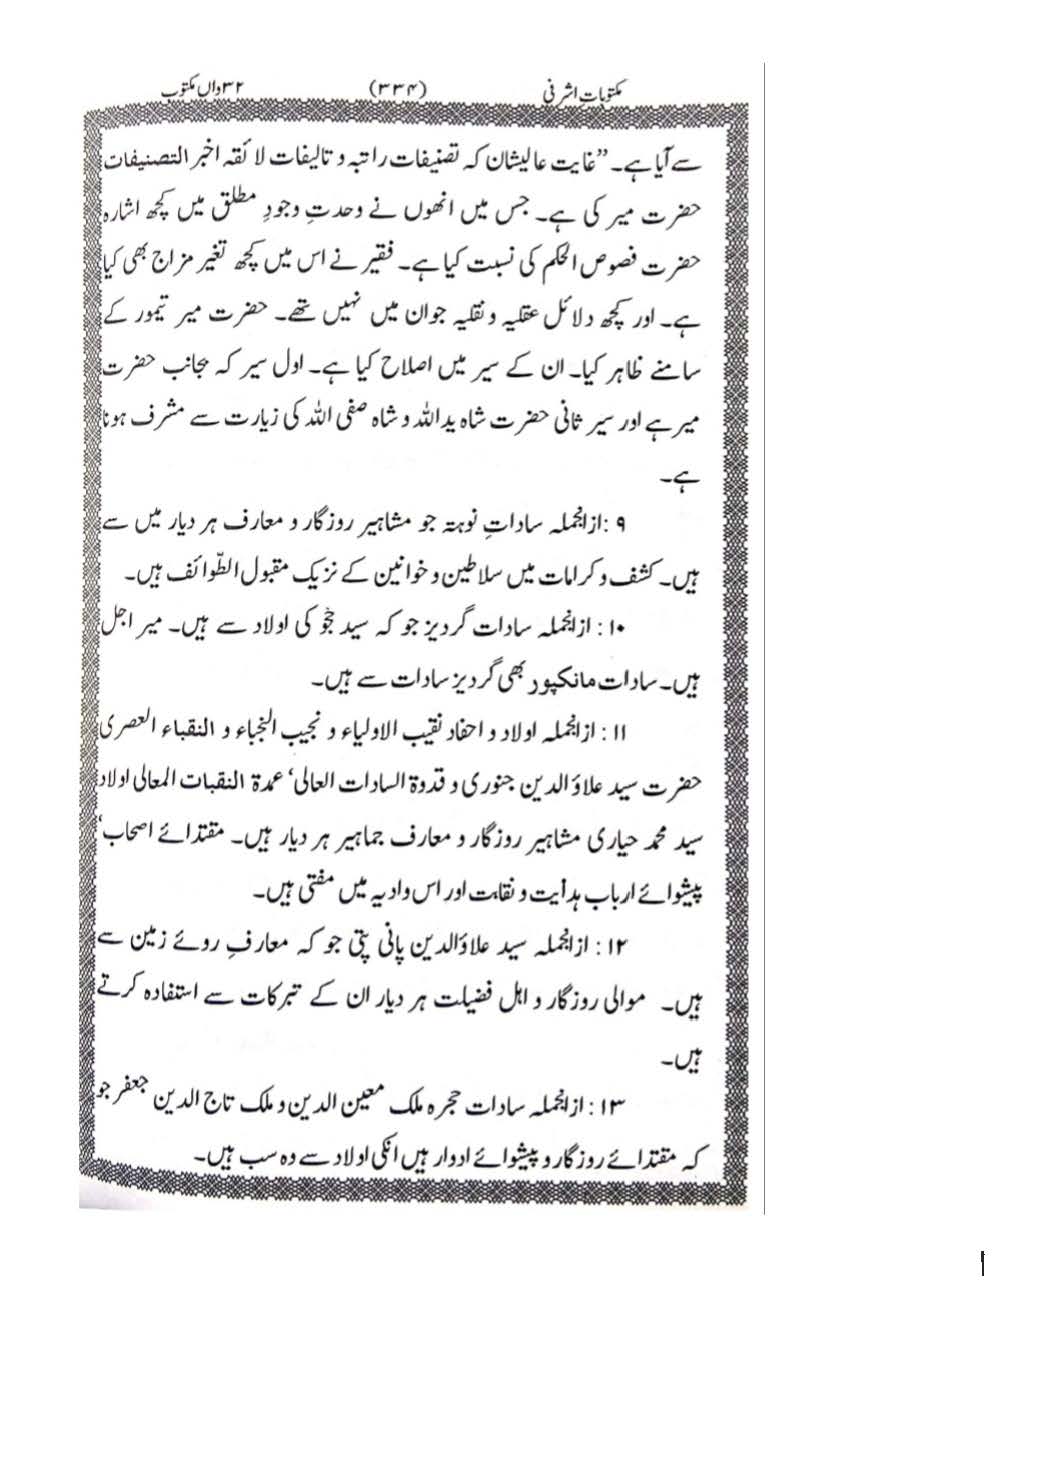 مکتوبات اشرفی (۳۳۴) ۳۲واں مکتوب
سے آیا ہے۔ ”غایت عالیشان کہ تصنیفات راتبہ و تالیفات لائقہ اخبر التصنیفات
حضرت میر کی ہے۔ جس میں انھوں نے وحدتِ وجودِ مطلق میں کچھ اشارہ
حضرت فصوص الحکم کی نسبت کیا ہے۔ فقیر نے اس میں کچھ تغیر مزاج بھی کیا
ہے۔ اور کچھ دلائل عقلیہ و نقلیہ جو ان میں نہیں تھے۔ حضرت میر تیمور کے
سامنے ظاہر کیا۔ ان کے سیر میں اصلاح کیا ہے۔ اول سیر کہ بجانب حضرت
میر ہے اور سیر ثانی حضرت شاہ ید اللہ و شاہ صفی اللہ کی زیارت سے مشرف ہونا
ہے۔
۹ : ازانجملہ ساداتِ نوہتہ جو مشاہیر روزگار و معارف ہر دیار میں سے
ہیں۔ کشف و کرامات میں سلاطین و خوانین کے نزیک مقبول الطّوائف ہیں۔
۱۰ : ازانجملہ سادات گردیز جو کہ سید جؔجو کی اولاد سے ہیں۔ میر اجل
ہیں۔ سادات مانکپور بھی گردیز سادات سے ہیں۔
۱۱ : ازانجملہ اولاد و احفاد نقیب الاولیاء و نجیب النجباء و النقباء العصری
حضرت سید علاؤ الدین جنوری و قدوۃ السادات العالی‘ عمدۃ النقبات المعالی اولاد
سید محمد حیاری مشاہیر روزگار و معارف جماہیر ہر دیار ہیں۔ مقتدائے اصحاب‘
پیشوائے ارباب ہدایت و نقابت اور اس وادیہ میں مفتی ہیں۔
۱۲ : ازانجملہ سید علاؤالدین پانی پتی جو کہ معارفِ روئے زمین سے
ہیں۔ موالی روزگار و اہل فضیلت ہر دیار ان کے تبرکات سے استفادہ کرتے
ہیں۔
۱۳ : ازانجملہ سادات حجرہ ملک معین الدین و ملک تاج الدین جعفر جو
کہ مقتدائے روزگار و پیشوائے ادوار ہیں انکی اولاد سے وہ سب ہیں۔